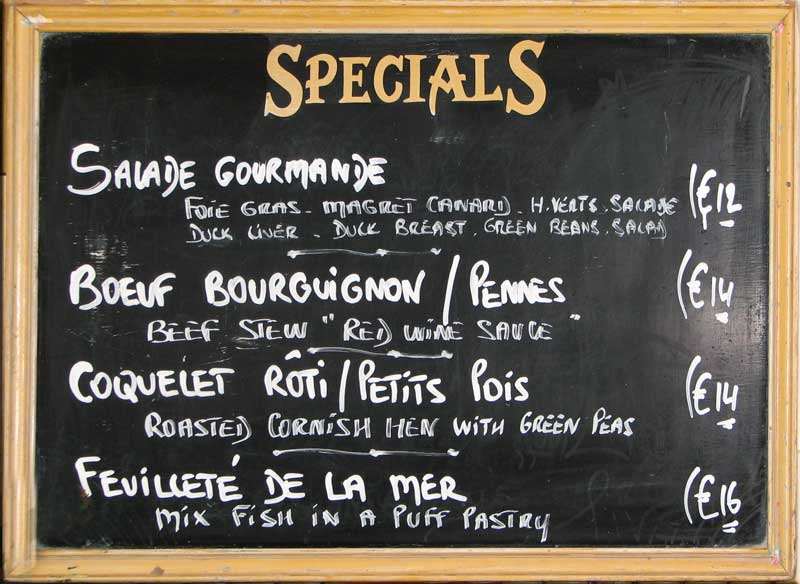 SPECIALS
SALADE GOURMANDE (€12
FOIE GRAS - MAGRET CANARD - H. VERTS. SALADE
DUCK LIVER - DUCK BREAST. GREEN BEANS. SALAD
BOEUF BOURGUIGNON / PENNES (€14
BEEF STEW "RED WINE SAUCE"
COQUELET RÔTI / PETITS POIS (€14
ROASTED CORNISH HEN WITH GREEN PEAS
FEUILLETÉ DE LA MER (€16
MIX FISH IN A PUFF PASTRY